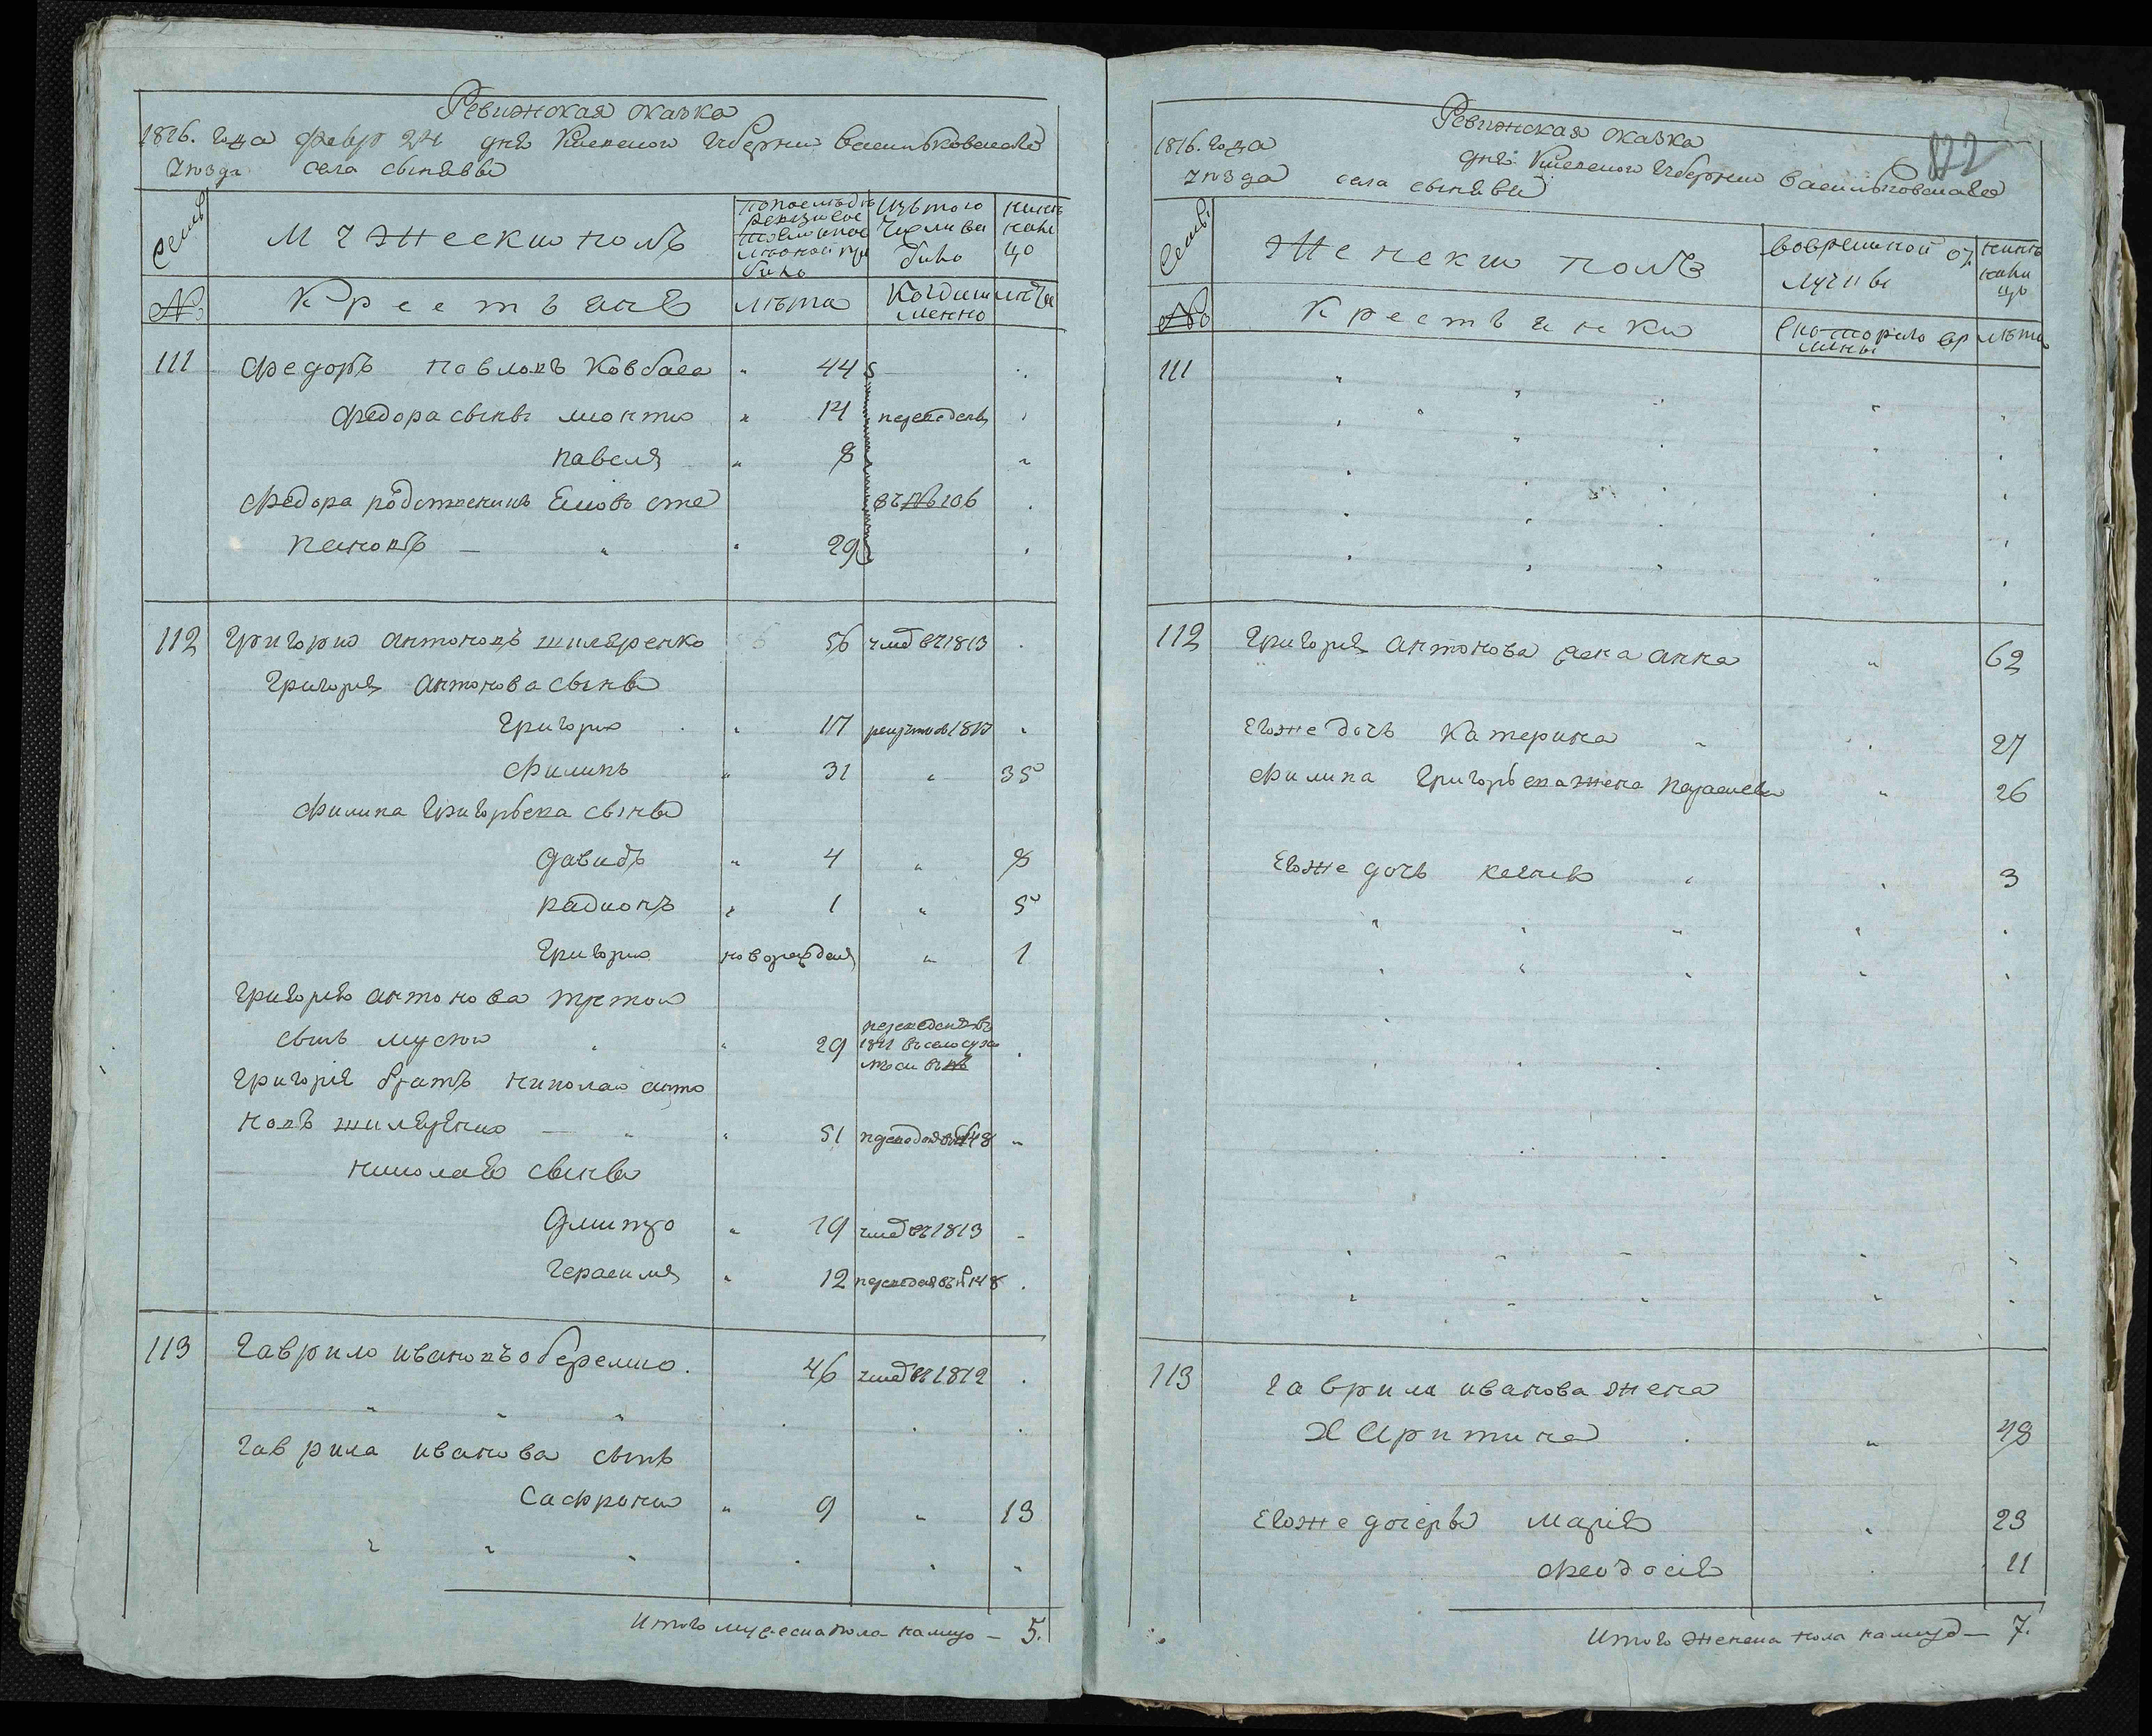 Ревижская сказка
1816. года февр 24 дня Киевской Губернии Васильковскаго
уѣзда села сынявы
Семьи
Мужеский полъ
изъ того числа выбило
нинѣ на лицо
№
Крестьяне
лѣта
Когда именно
лѣта
111 Федоръ Павловъ Ковбаса 44
Федора сыны 14 переведены
Павелъ 8
Федора родственникъ сте 29 въ № 106
пановъ
112 Григорий Антоновъ шляренко 56 умер въ 1813
Григория Антонова сыны
Григорий 17
Филипъ 31 " 35
Филипа Григорьева сыны
Давидъ " 4 " 8
Радионъ " 1 " 5
Григорий новорожден " 1
Григория Антонова третои
сынъ 29 переведен въ
Григория братъ Николай анто
новъ шиляренко 51 переведен въ № 148
Николая сыны
Дмитро 19 умер въ 1813
Герасимъ 12 переведен въ № 148
113 Гаврило Ивановъ оберемко 46 умер въ 1812
Гаврила Иванова сынъ
Сафроний " 9 " 13
Итого мужеска пола налицо — 5.
Ревижская сказка
122
1816. года дня Киевской Губернии Васильковскаго
уѣзда села сынявы
Семьи
Женский полъ
Вовременной отлучки
нинѣ налицо
№
Крестьянки
Скоторого времены
лѣта
111
112 Григория Антонова жена анна " 62
Егоже дочь Катерина 27
Филипа Григорьева жена Парасиева " 26
Егоже дочь 3
113 Гаврила иванова жена
Харитина " 48
Егоже дочеры Мария 23
Феодосия 11
Итого женска пола налицо — 7.